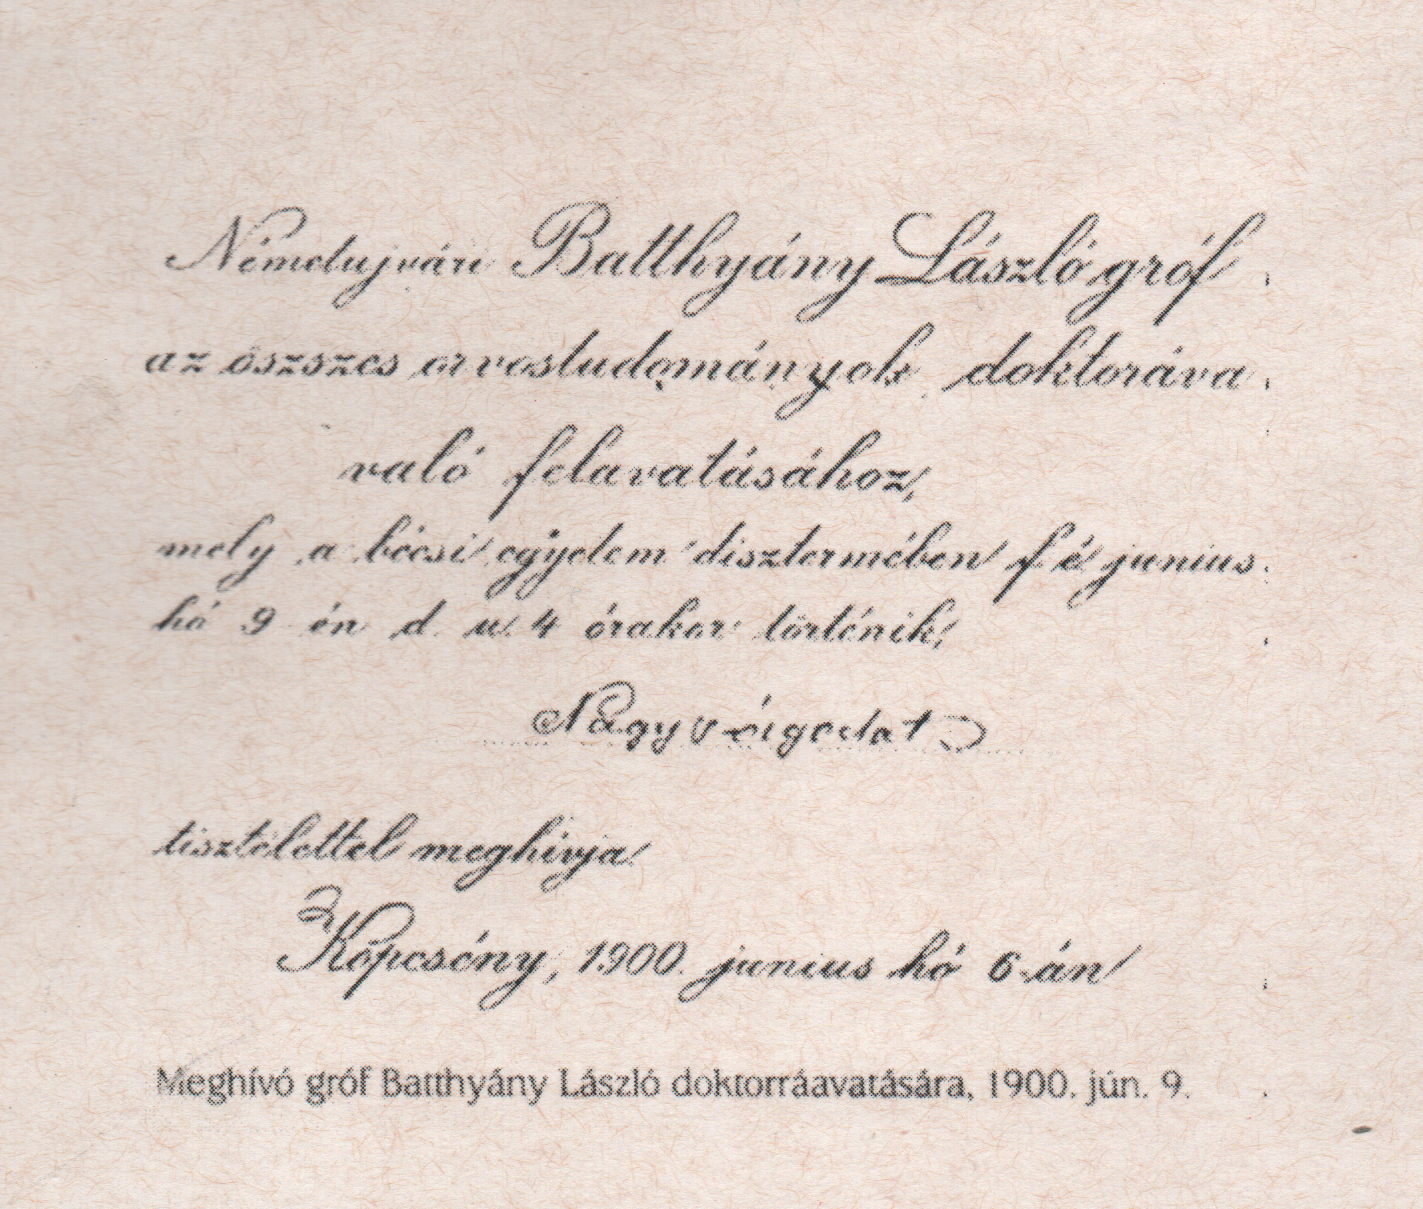 Németujvári Batthyány László gróf
az öszszes orvostudományok doktorává
való felavatásához,
mely a bécsi egyetem disztermében f é junius
hó 9 én d. u. 4 órakor történik,
Nagyságodat
tisztelettel meghivja
Köpcsény, 1900. junius hó 6.án
Meghívó gróf Batthyány László doktorráavatására, 1900. jún. 9.